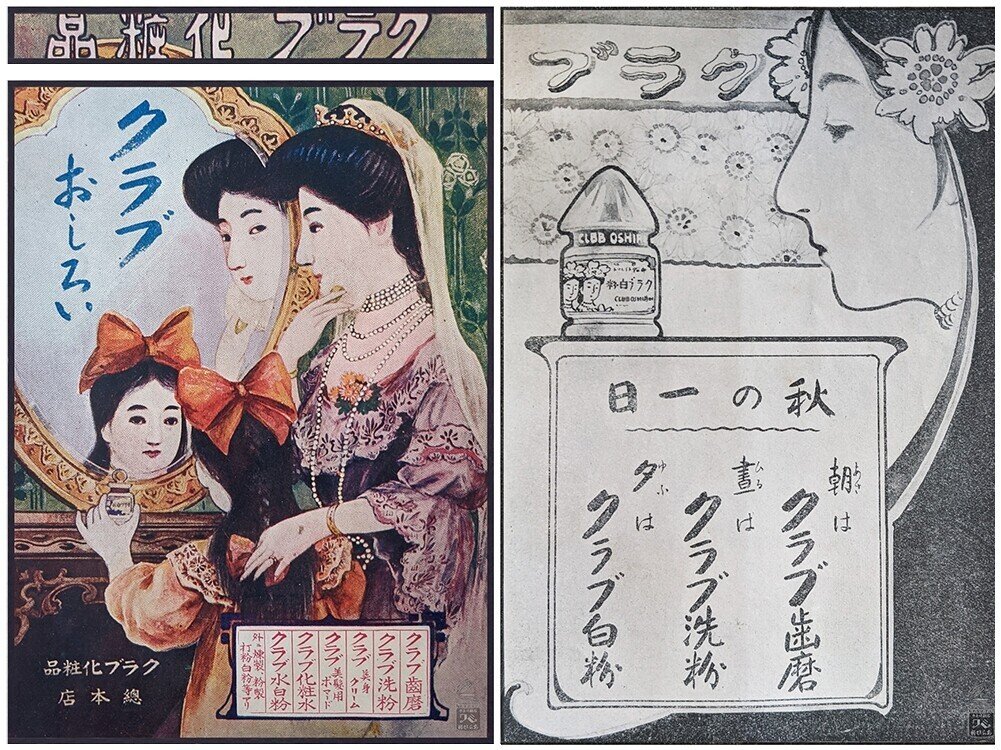 クラブ化粧品
クラブ
おしろい
クラブ化粧品
總本店
クラブ歯磨
クラブ洗粉
クラブ美身クリーム
クラブ美髪用ポマード
クラブ化粧水
クラブ水白粉
外ニ煉製、粉製
打粉白粉等アリ
クラブ
CLUB OSHIR
クラブ白粉
秋の一日
朝は
クラブ歯磨
晝は
クラブ洗粉
夕は
クラブ白粉